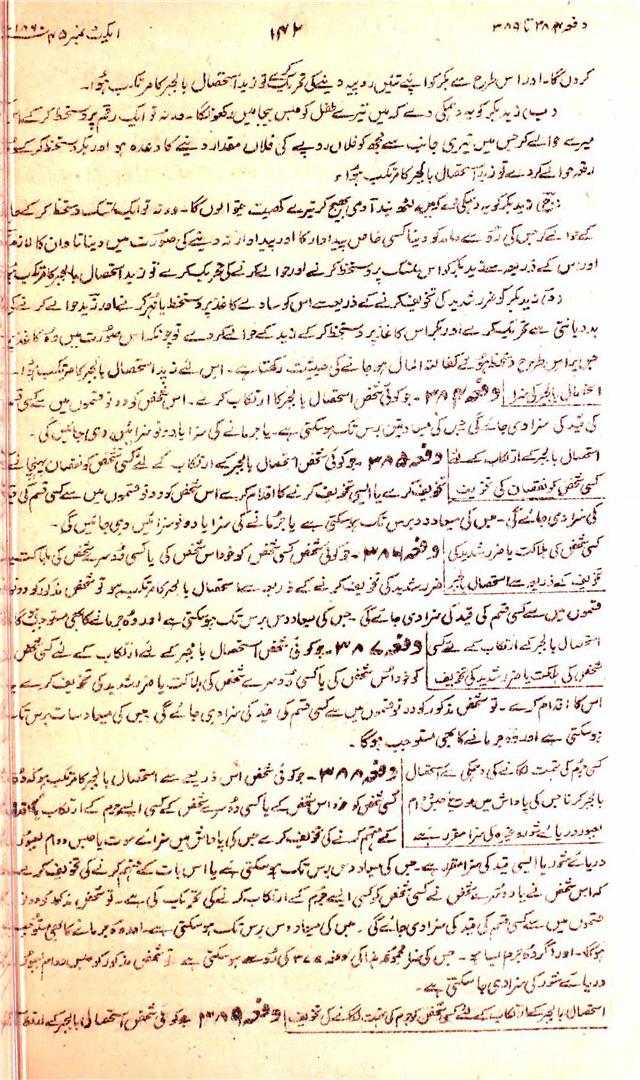 دفعہ ۳۸۴ تا ۳۸۹ ۱۴۲ ایکٹ نمبر ۴۵ ۱۸۶۰
کروں گا۔ اور اس طرح سے بکر کو اپنے تئیں روپیہ دینے کی تحریک کرے تو زید استحصال بالجبر کا مرتکب ہوا۔
(ب) زید بکر کو یہ دھمکی دے کہ میں تیرے طفل کو حبس بیجا میں رکھونگا۔ ورنہ تو ایک رقم پر دستخط کر کے
میرے حوالے کر جس میں تیری جانب سے مجھ کو فلاں روپے کی فلاں مقدار دینے کا وعدہ ہو اور بکر دستخط کر کے
حوالے کر دے تو زید استحصال بالجبر کا مرتکب ہوا۔
(ج) زید بکر کو یہ دھمکی دے کہ میں لٹھ بند آدمی بھیج کر تیرے کھیت جتوا لوں گا۔ ورنہ تو ایک تمسک دستخط کر کے
کے حوالے کر جس کی رو سے حامد کو دینا کسی خاص پیداوار کا اور پیداوار نہ دینے کی صورت میں دینا تاوان کا
اور اس کے ذریعہ سے زید بکر کو اس تمسک پر دستخط کرنے اور حوالے کرنے کی تحریک کرے تو زید استحصال بالجبر کا مرتکب
(د) زید بکر کو ضرر شدید کی تخویف کرنے کے ذریعہ سے اس کو سادے کاغذ پر دستخط یا مہر کرنے اور زید حوالے کرنے کی
بد دیانتی سے تحریک کرے اور بکر اس کاغذ پر دستخط کر کے زید کے حوالے کر دے تو چونکہ اس صورت میں وہ کاغذ
جس پر اس طرح دستخط ہوئے کفالت المال ہو جانے کی حیثیت رکھتا ہے۔ اس لئے زید استحصال بالجبر کا مرتکب ہوا۔
استحصال بالجبر کی سزا دفعہ ۳۸۴۔ جو کوئی شخص استحصال بالجبر کا ارتکاب کرے۔ اس شخص کو دونو قسموں میں سے کسی
کی قید کی سزا دی جائے گی جس کی میعاد تین برس تک ہو سکتی ہے۔ یا جرمانے کی سزا یا دونو سزائیں دی جائیں گی۔
استحصال بالجبر کے ارتکاب کے لئے دفعہ ۳۸۵۔ جو کوئی شخص استحصال بالجبر کے ارتکاب کے لئے کسی شخص کو نقصان پہنچانے
کسی شخص کو نقصان کی تخویف تخویف کرے یا ایسی تخویف کرنے کا اقدام کرے اس شخص کو دونو قسموں میں سے کسی قسم کی
کی سزا دی جائے گی۔ جس کی میعاد دو برس تک ہو سکتی ہے یا جرمانے کی سزا یا دونو سزائیں دی جائیں گی۔
کسی شخص کی ہلاکت یا ضرر شدید کی دفعہ ۳۸۶۔ جو کوئی شخص کسی شخص کو خود اس شخص کی یا کسی دوسرے شخص کی ہلاکت
تخویف کے ذریعہ سے استحصال بالجبر ضرر شدید کی تخویف کرنے کے ذریعہ سے استحصال بالجبر کا مرتکب ہو تو شخص مذکور کو دونو
قسموں میں سے کسی قسم کی قید کی سزا دی جائے گی جس کی میعاد دس برس تک ہو سکتی ہے اور وہ جرمانے کا بھی مستوجب
استحصال بالجبر کے ارتکاب کے لئے کسی دفعہ ۳۸۷۔ جو کوئی شخص استحصال بالجبر کے لئے ارتکاب کے لئے کسی شخص
شخص کی ہلاکت یا ضرر شدید کی تخویف کو خود اس شخص کی یا کسی دوسرے شخص کی ہلاکت یا ضرر شدید کی تخویف کرے
اس کا اقدام کرے۔ تو شخص مذکور کو دونو قسموں میں سے کسی قسم کی قید کی سزا دی جائے گی جس کی میعاد سات برس تک
ہو سکتی ہے اور وہ جرمانے کا بھی مستوجب ہوگا۔
کسی جرم کی تہمت لگانے کی دھمکی سے استحصال دفعہ ۳۸۸۔ جو کوئی شخص اس ذریعہ سے استحصال بالجبر کا مرتکب ہو کہ وہ
بالجبر کرنا جس کی پاداش میں موت یا حبس دوام کسی شخص کو خود اس شخص کے یا کسی دوسرے شخص کے کسی ایسے جرم کے ارتکاب
بعبور دریائے شور وغیرہ کی سزا مقرر ہے کے متہم کرنے کی تخویف کرے جس کی پاداش میں سزائے موت یا حبس دوام بعبور
دریائے شور یا ایسی قید کی سزا مقرر ہے۔ جس کی میعاد دس برس تک ہو سکتی ہے یا اس بات کے متہم کرنے کی تخویف کرے
کہ اس شخص نے یا دوسرے شخص نے کسی شخص کو کسی ایسے جرم کے ارتکاب کرنے کی تحریک کی ہے۔ تو شخص مذکور کو دونو
قسموں میں سے کسی قسم کی قید کی سزا دی جائے گی۔ جس کی میعاد دس برس تک ہو سکتی ہے۔ اور وہ جرمانے کا بھی مستوجب
ہوگا۔ اور اگر وہ جرم ایسا ہو۔ جس کی سزا مجموعہ ہذا کی دفعہ ۳۷۷ کی رو سے ہو سکتی ہے تو شخص مذکور کو حبس دوام بعبور
دریائے شور کی سزا دی جا سکتی ہے۔
استحصال بالجبر کے ارتکاب کے لئے کسی شخص کو جرم کی تہمت لگانے کی تخویف دفعہ ۳۸۹۔ جو کوئی شخص استحصال بالجبر کے